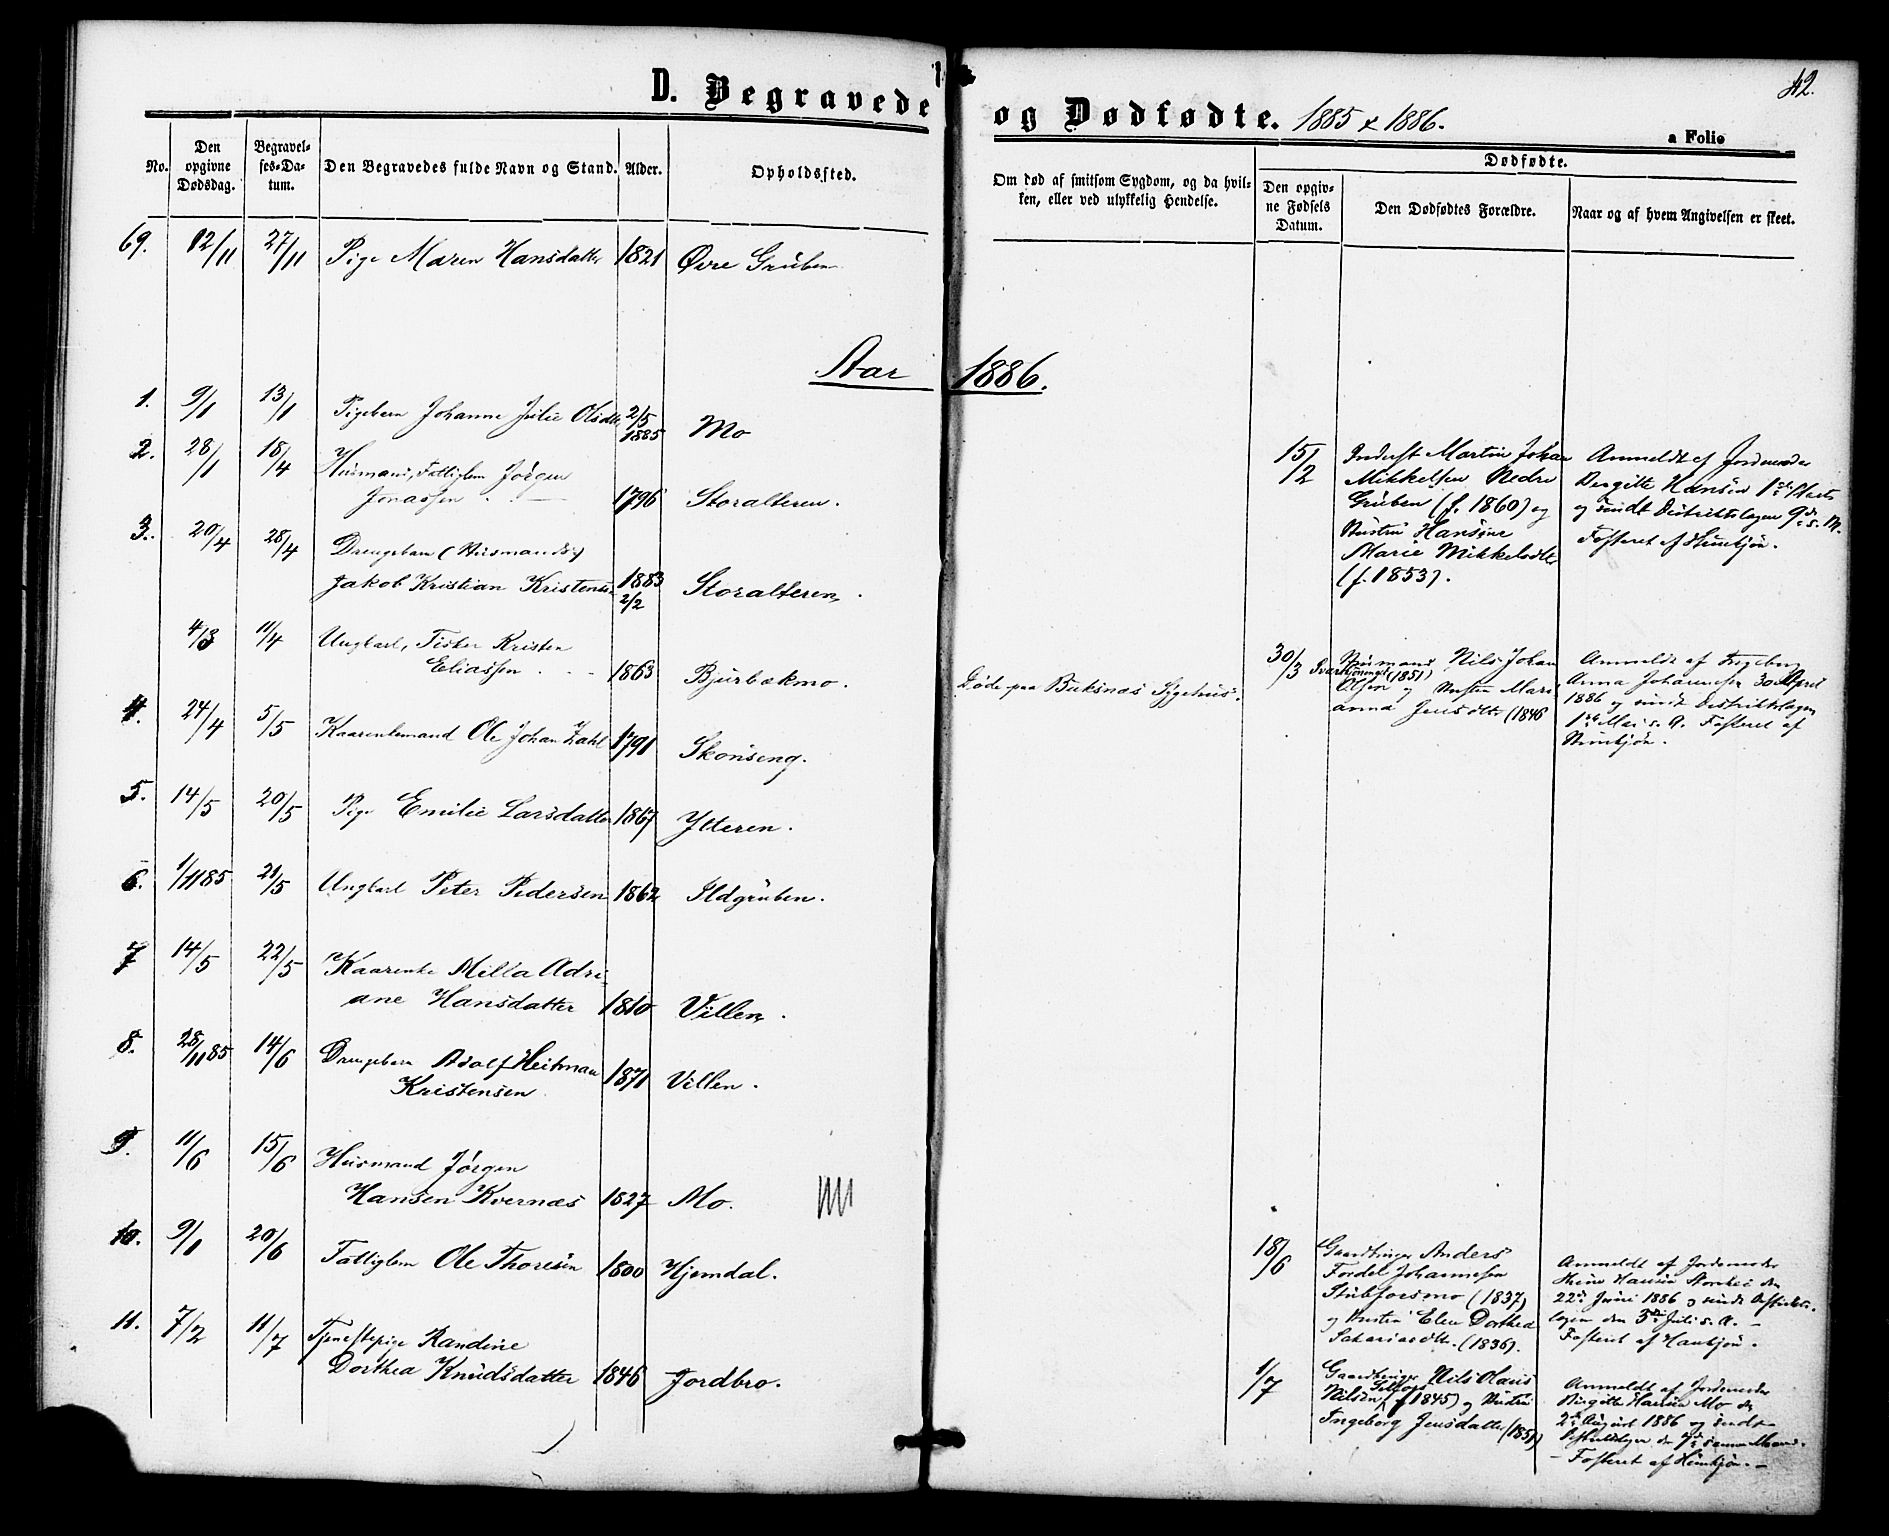 42.
D. Begravede og Dødfødte. 1885 & 1886.
a Folio
No.
Den opgivne Dødsdag.
Begravelses-Datum.
Den Begravedes fulde Navn og Stand.
Alder.
Opholdssted.
Om død af smitsom Sygdom, og da hvilken, eller ved ulykkelig Hendelse.
Dødfødte.
Den opgivne Fødsels Datum.
Den Dødfødtes Forældre.
Naar og af hvem Angivelsen er skeet.
69. 12/11 27/11 Pige Maren Hansdatter 1821 Øvre Gruben
Aar 1886.
1. 9/1 13/1 Pigebarn Johanne Julie Olsdtr 2/5 1885 Mo
2. 28/1 18/4 Husmand, Fattiglem Jørgen
Jonassen 1796 Storalteren.
3. 20/4 28/4 Drengebarn (Husmands)
Jakob Kristian Kristensen 1883 2/2 Storalteren.
4/3 11/4 Ungkarl, Fisker Kristen
Eliassen 1863 Bjurbækmo. Døde paa Buksnæs Sygehus.
4. 24/4 5/5 Kaarenlemand Ole Johan Zahl 1791 Skonseng.
5. 14/5 20/5 Pige Emilie Larsdatter 1867 Ytteren.
6. 1/11 85 21/5 Ungkarl Peter Pedersen 1862 Ildgruben.
7 14/5 22/5 Kaarenke Milla Adri-
ane Hansdatter 1810 Villen.
8. 28/11 85 14/6 Drengebarn Adolf Heitman
Kristensen 1871 Villen.
9. 11/6 15/6 Husmand Jørgen
Hansen Kvernæs 1827 Mo.
10. 9/1 20/6 Fattiglem Ole Thoresen 1800 Hjemdal.
11. 7/2 11/7 Tjenestepige Randine
Dorthea Knudsdatter 1846 Jordbro.
15/2 Inderst Martin Johan
Mikkelsen Nedre
Gruben (f. 1860) og
Hustru Hansine
Marie Mikkelsdtr
(f. 1853).
Anmeldt af Jordemoder
Bergitte Hansen 1ste Marts
og sendt Distriktslægen 9de s. M.
Fosteret af Hunkjøn.
30/3 Husmand Nils Johan
(1851)
Olsen og Hustru Mari
anna Jensdtr (1846
Anmeldt af Ingeborg
Anna Johannesen 30 April
1886 og sendt Distriktslægen
1ste Mai s. A. Fosteret af
Hunkjøn.
18/6 Gaardbruger Anders
Fordel Johannesen
Stubforsmo (1837)
og Hustru Elen Dorthea
Sakariasdtr. (1836).
Anmeldt af Jordemoder
Hansen den
22de Juni 1886 og sendt Distrikts-
lægen den 3die Juli s. A. —
Fosteret af Hankjøn.
1/7 Gaardbruger Nils Olaus
Selfors
Nilsen (f 1845) og Hustru
Ingeborg Jensdatter (1851)
Anmeldt af Jordemoder
Birgitte Hansen Mo den
2den August 1886 og sendt
Distriktslægen den 7de samme Maaned.
— Fosteret af Hunkjøn. —